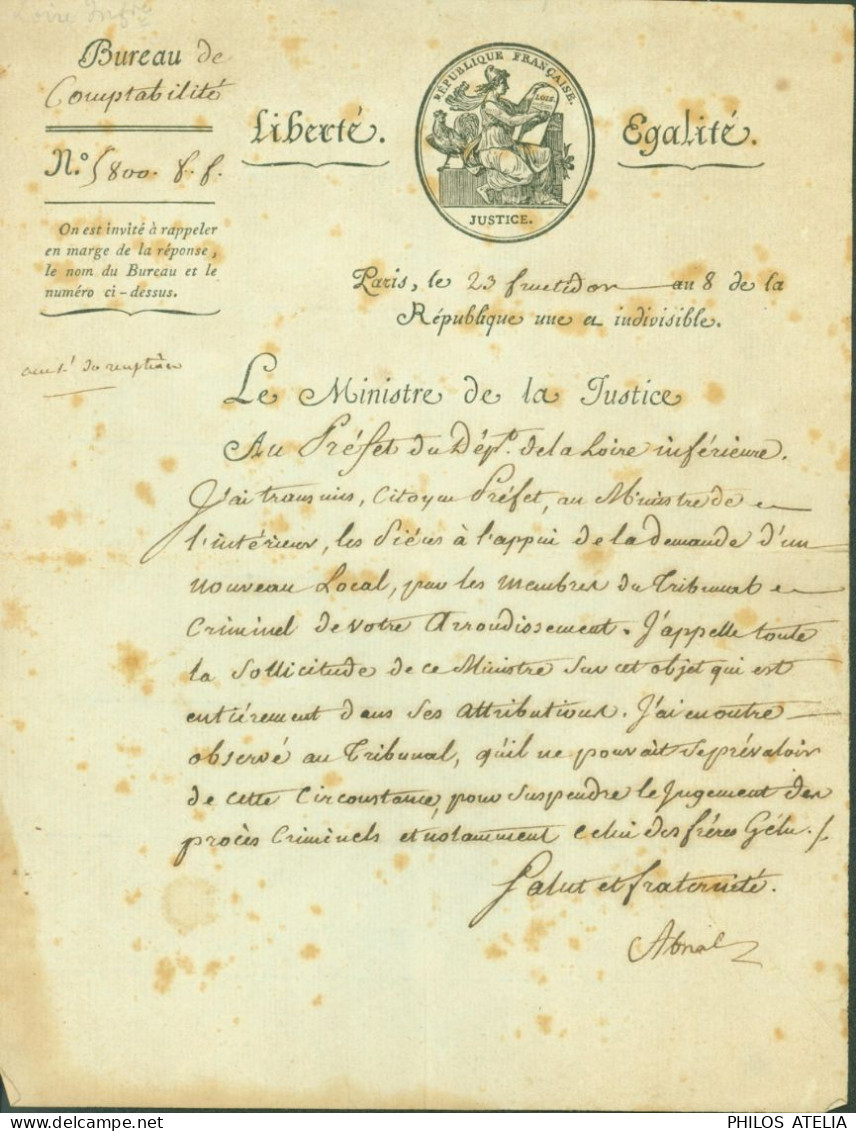 Loire Infre
Bureau de
Comptabilité
N.o 5800. f. f.
On est invité à rappeler
en marge de la réponse,
le nom du Bureau et le
numéro ci-dessus.
Liberté.
RÉPUBLIQUE FRANÇAISE.
LOIX.
JUSTICE.
Egalité.
Paris, le 23 fructidor an 8 de la
République une et indivisible.
Le Ministre de la Justice
Au Préfet du Dépt. de la Loire inférieure.
J'ai transmis, Citoyen Préfet, au Ministre de
l'intérieur, les Piéces à l'appui de la demande d'un
nouveau Local, par les membres du Tribunal
Criminel de votre Arrondissement. J'appelle toute
la Sollicitude de ce Ministre Sur cet objet qui est
entiérement dans Ses attributions. J'ai en outre
observé au Tribunal, qu'il ne pouvait Se prévaloir
de cette Circonstance, pour Suspendre le Jugement des
procès Criminels et notamment celui des frères Gélu. /.
Salut et fraternité.
Abrial
PHILOS ATELIA